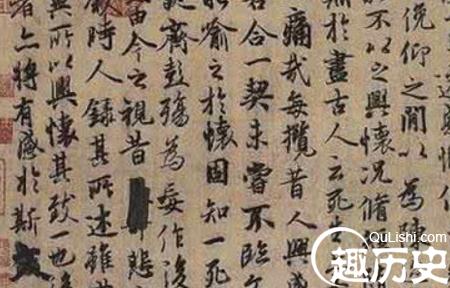 俛仰之閒以為
不以之興懷況脩
於盡古人云死生
痛哉每攬昔人興感
若合一契未嘗不臨文
喻之於懷固知一死
誕齊彭殤為妄作後
由今之視昔悲
叙時人錄其所述雖世
異所以興懷其致一也後
者亦將有感於斯文
QuLiShi.com
趣历史